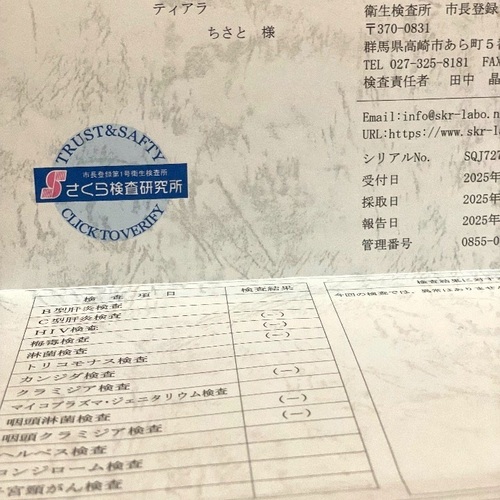 ティアラ
ちさと 様
衛生検査所 市長登録
〒370-0831
群馬県高崎市あら町5
TEL 027-325-8181 FAX
検査責任者 田中 晶
Email:info@skr-labo.n
URL:https://www.skr-l
シリアルNo. SQJ727
受付日 2025年
採取日 2025年
報告日 2025年
管理番号 0855-0
TRUST&SAFTY
市長登録第1号衛生検査所
さくら検査研究所
CLICK TO VERIFY
検査項目 検査結果
B型肝炎検査
C型肝炎検査 (－)
HIV検査 (－)
梅毒検査 (－)
淋菌検査
トリコモナス検査
カンジダ検査 (－)
クラミジア検査
マイコプラズマ・ジェニタリウム検査 (－)
咽頭淋菌検査 (－)
咽頭クラミジア検査
ヘルペス検査
コンジローム検査
子宮頸がん検査
検査結果に対す
今回の検査では、異常はありません